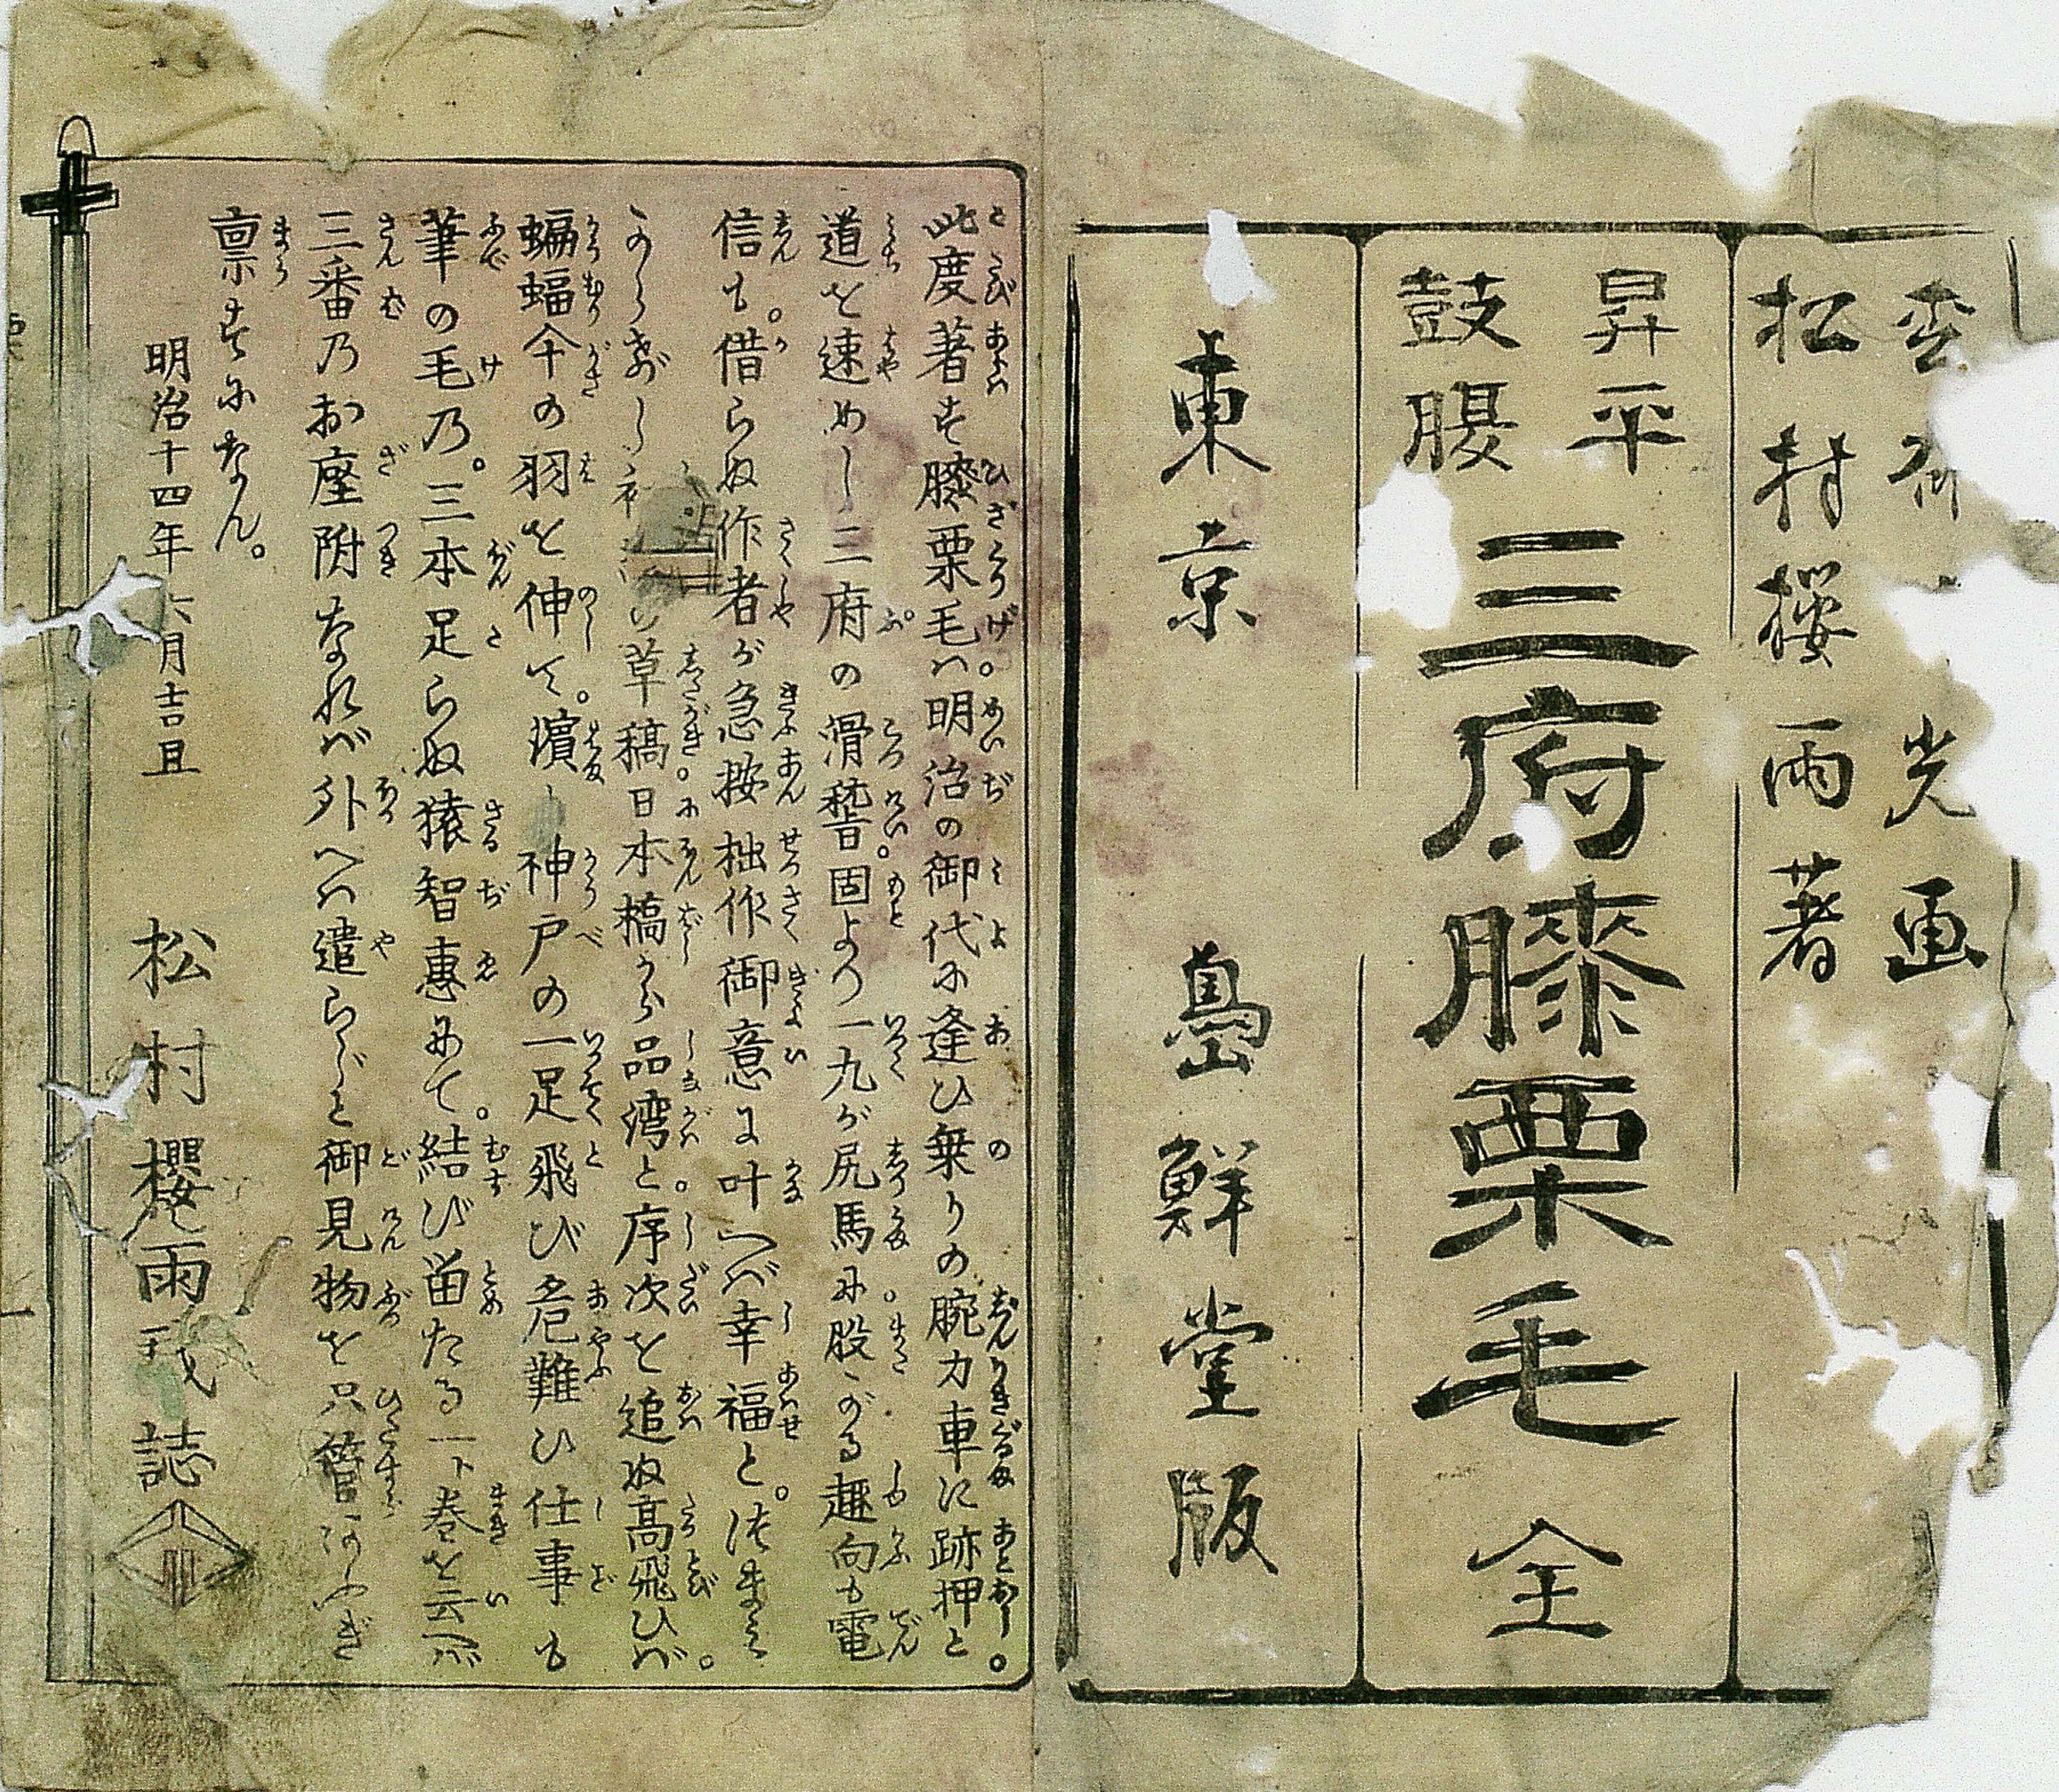 光画
松村桜雨著
昇平
鼓腹
三府膝栗毛 全
東京 島鮮堂版
此度著す膝栗毛ハ。明治の御代に逢ひ乗りの腕力車に跡押と。
道を速めし三府の滑稽。固より一九が尻馬に。股がる趣向も電
信も。借らぬ作者が急按拙作御意に叶へバ幸福と。
草稿。日本橋から品湾と。序次を追ぬ高飛ひバ。
蝙蝠傘の羽を伸して。濱 神戸の一足飛び危難ひ仕事も
筆の毛乃。三本足らぬ猿智惠にて。結び畄たる一ト巻を云へバ
三番乃お座附なれバ外へハ遣らじと御見物を只管
禀すになん。
明治十四年六月吉旦
松村櫻雨 誌